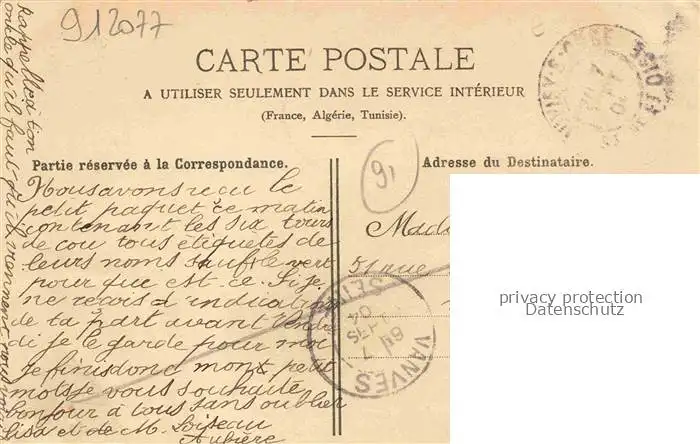 912077
CARTE POSTALE
A UTILISER SEULEMENT DANS LE SERVICE INTÉRIEUR
(France, Algérie, Tunisie).
Partie réservée à la Correspondance.
Adresse du Destinataire.
91
Nous avons reçu le
petit paquet ce matin
contenant les six tours
de cou tous étiquetés de
leurs noms sauf le vert
pour que est-ce. Si je
ne reçois d'indication
de ta part avant Vendre
di je le garde pour moi
Je finis donc mon petit
mot je vous souhaite
bonjour à tous sans oublier
Lisa et de M. Loiseau
Aubière
Rappelle à ton
oncle qu'il faut qu'il viennent nous
Mada
VANVES
SEINE
privacy protection
Datenschutz